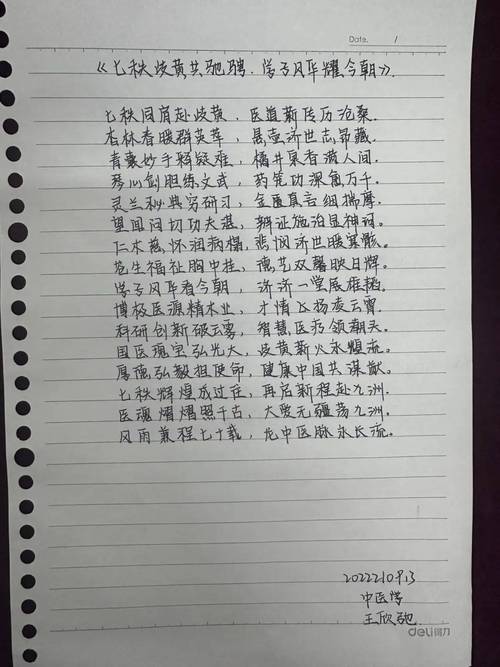 Date. /
《七秩歧黄共驰骋·学子风华耀今朝》.
七秩同肩赴歧黄，医道薪传历沧桑。
杏林春暖群英萃，悬壶济世志昂藏。
青囊妙手释疑难，橘井泉香满人间。
琴心剑胆练文武，药笼功深角万千。
灵兰秘典穷研习，金匮真言细揣摩。
望闻问切功夫湛，辨证施治显神
仁术慈怀润病榻，悲悯济世暖冥骸。
苍生福祉胸中挂，德艺双馨映日辉。
学子风华看今朝，济济一堂展雄韬。
博极医源精术业，才情飞扬凌云霄。
科研创新破云雾，智慧医疗领潮头。
国医瑰宝弘光大，歧黄薪火永恒流。
厚德弘毅担使命，健康中国共谋猷。
七秩辉煌成过往，再启新程赴九洲。
医魂熠熠照千古，大爱无疆荡九洲。
风雨兼程七十载，龙中医脉永长流。
中医学
王欣驰
deli得力